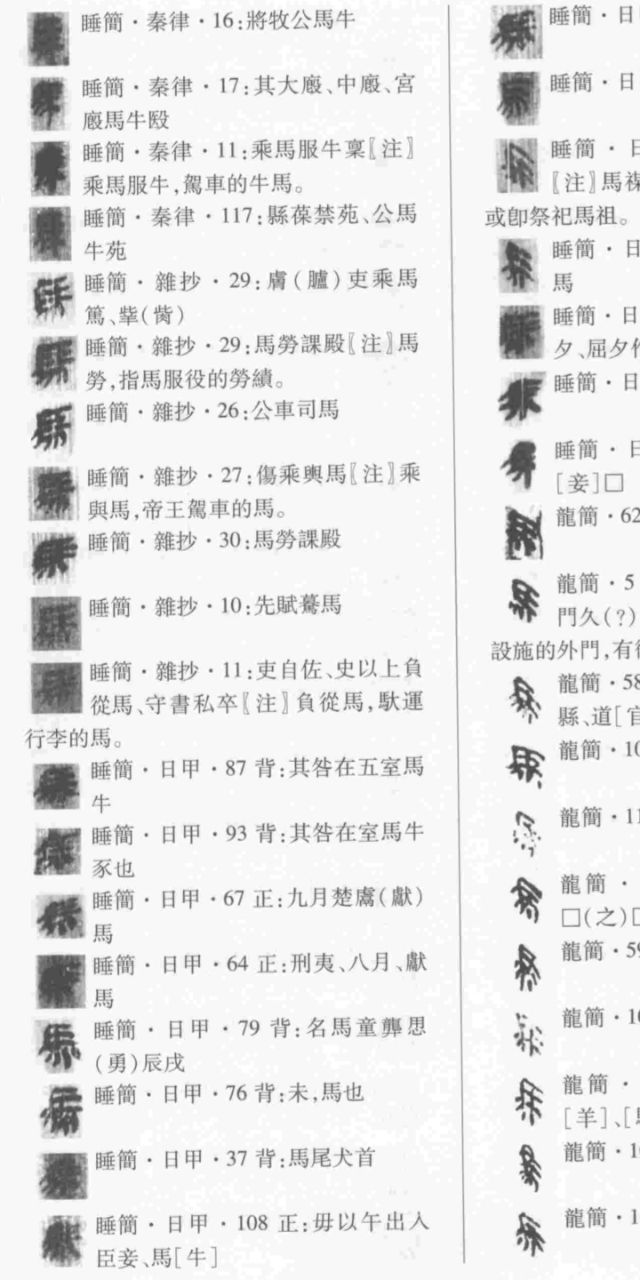 睡簡·秦律·16:將牧公馬牛
睡簡·秦律·17:其大廄、中廄、宮
廄馬牛殹
睡簡·秦律·11:乘馬服牛稟〖注〗
乘馬服牛,駕車的牛馬。
睡簡·秦律·117:縣葆禁苑、公馬
牛苑
睡簡·雜抄·29:膚(臚)吏乘馬
篤、𦍧(胔)
睡簡·雜抄·29:馬勞課殿〖注〗馬
勞,指馬服役的勞績。
睡簡·雜抄·26:公車司馬
睡簡·雜抄·27:傷乘輿馬〖注〗乘
輿馬,帝王駕車的馬。
睡簡·雜抄·30:馬勞課殿
睡簡·雜抄·10:先賦驀馬
睡簡·雜抄·11:吏自佐、史以上負
從馬、守書私卒〖注〗負從馬,馱運
行李的馬。
睡簡·日甲·87 背:其咎在五室馬
牛
睡簡·日甲·93 背:其咎在室馬牛
豕也
睡簡·日甲·67 正:九月楚鬳(獻)
馬
睡簡·日甲·64 正:刑夷、八月、獻
馬
睡簡·日甲·79 背:名馬童龏思
(勇)辰戌
睡簡·日甲·76 背:未,馬也
睡簡·日甲·37 背:馬尾犬首
睡簡·日甲·108 正:毋以午出入
臣妾、馬[牛]
睡簡·日
睡簡·日
睡簡·日
〖注〗馬禖
或卽祭祀馬祖。
睡簡·日
馬
睡簡·日
夕、屈夕
睡簡·日
睡簡·日
[妾]□
龍簡·62
龍簡·5
門久(?)
設施的外門,有
龍簡·58
縣、道[官
龍簡·10
龍簡·11
龍簡·
□(之)□
龍簡·59
龍簡·10
龍簡·
[羊]、[
龍簡·10
龍簡·1